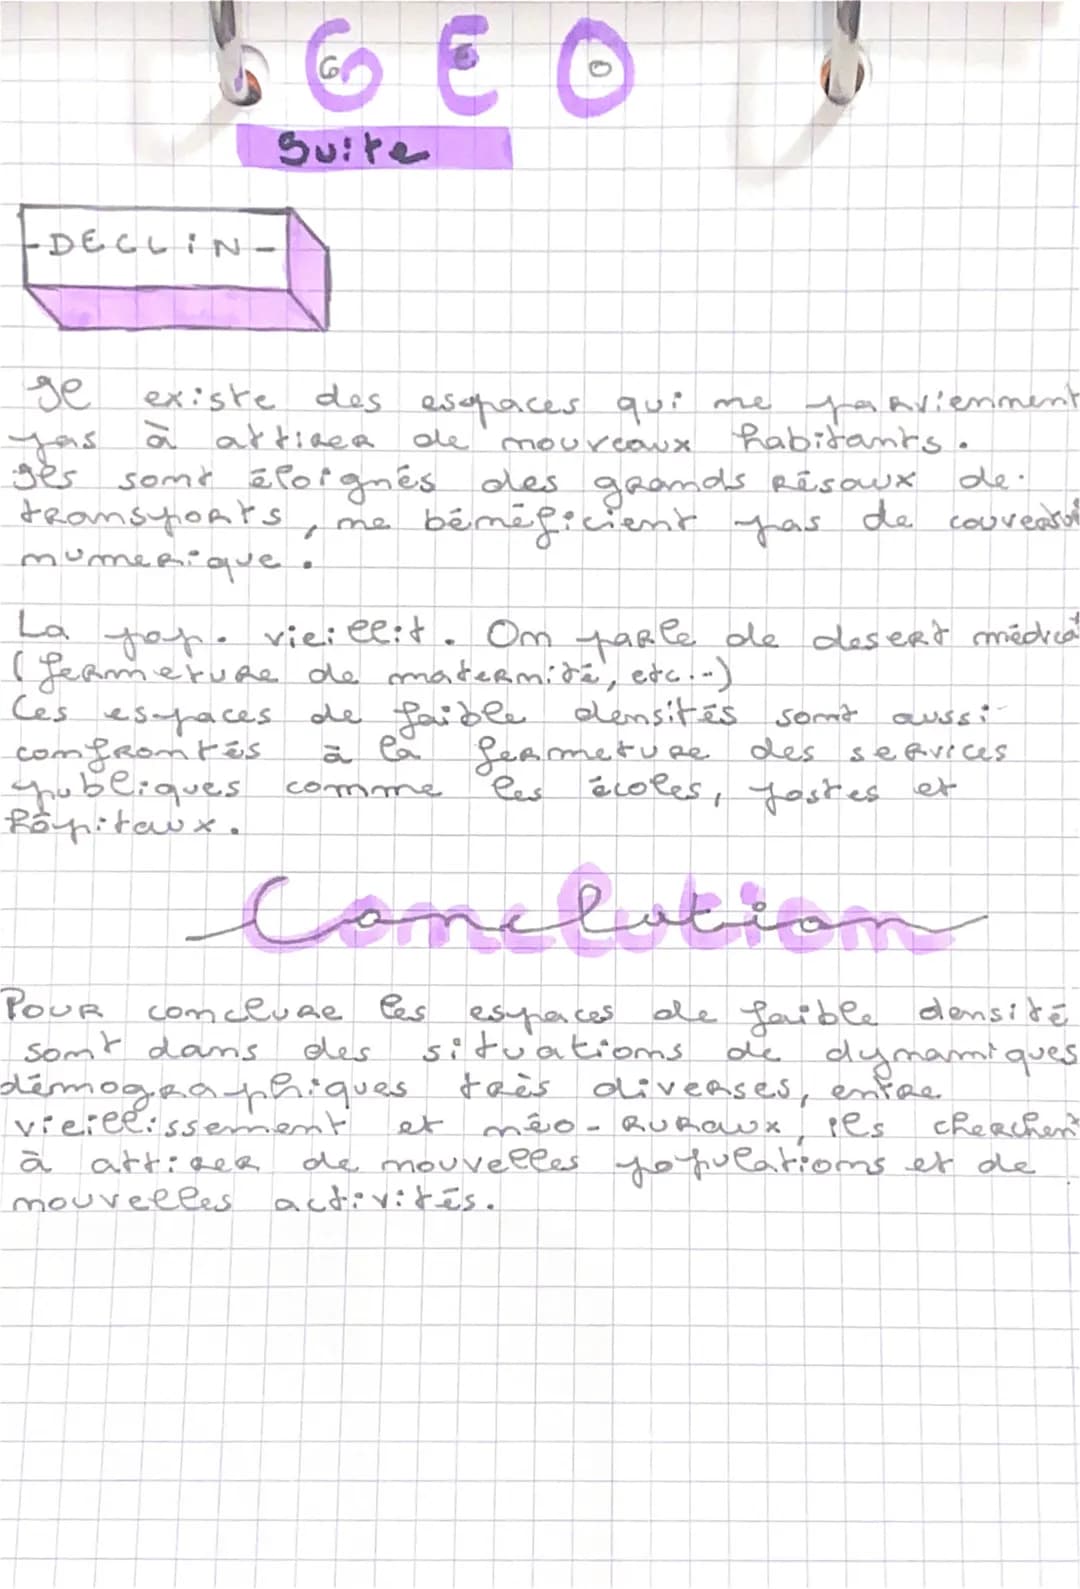 GEO
Suite
-DECLIN-
Il existe des espaces qui ne parviennent
pas à attirer de nouveaux habitants.
Ils sont éloignés des grands résaux de
transports, ne bénéficient pas de
numerique.
La pop. vieillit. On parle de desert médical
(fermeture de maternité, etc...)
Ces espaces de faible densités sont aussi
confrontés à la fermeture des services
publiques comme les écoles, postes et
hôpitaux.
Conclution
Pour conclure les espaces de faible densité
sont dans des situations de dynamiques
démographiques très diverses, entre
vieillissement et néo-ruraux, ils cherchent
à attirer de nouvelles populations et de
nouvelles activités.